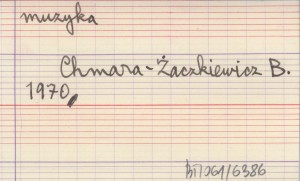 muzyka
Chmara-Żaczkiewicz B.
1970,
61/6386